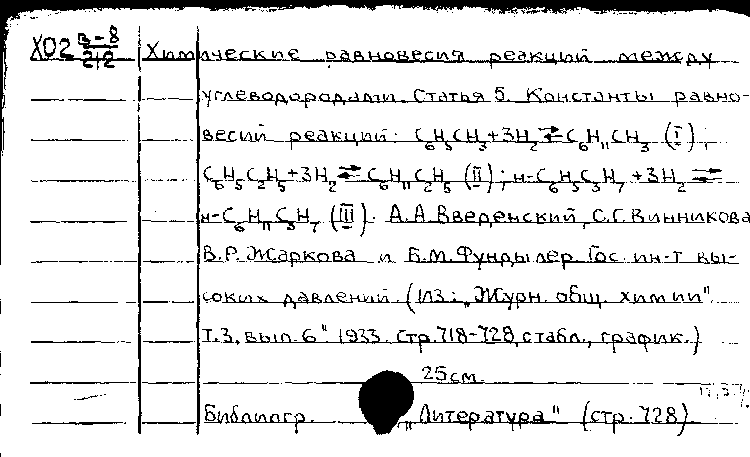 Х02 В-8/212 Химические равновесия реакций между
углеводородами. Статья 5. Константы равно-
весий реакций: C₆H₅CH₃+3H₂⇄C₆H₁₁CH₃ (I);
C₆H₅C₂H₅+3H₂⇄C₆H₁₁C₂H₅ (II); н-C₆H₅C₃H₇+3H₂⇄
н-C₆H₁₁C₃H₇ (III). А.А.Введенский, С.Г.Винникова
В.Р.Жаркова и Б.М.Фундылер. Гос. ин-т вы-
соких давлений. (Из: „Журн. общ. химии"
т.3, вып. 6" 1933. стр. 718-728, с табл., график.)
25 см.
Библиогр. „Литература" (стр. 728)